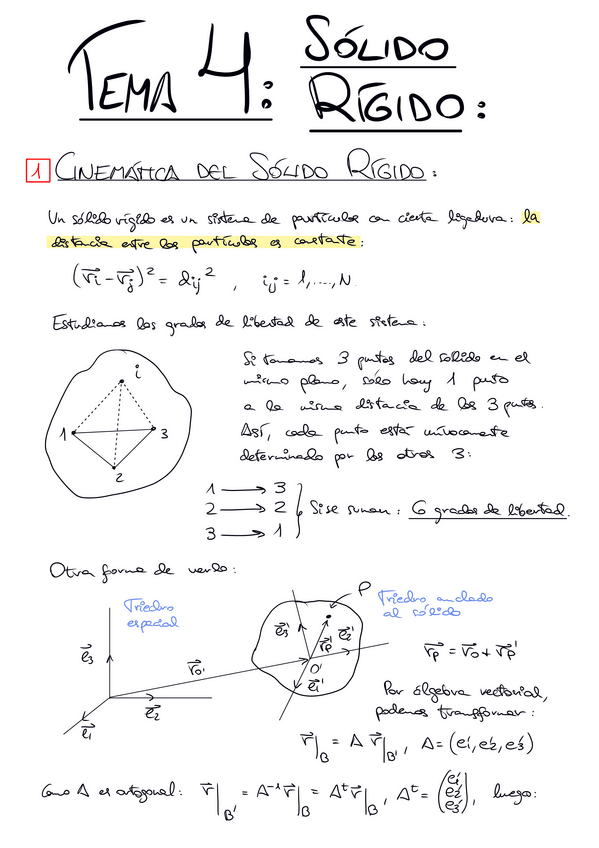 TEMA 4: SÓLIDO
RÍGIDO:
1 CINEMÁTICA DEL SÓLIDO RÍGIDO:
Un sólido rígido es un sistema de partículas con cierta ligadura: la
distancia entre las partículas es constante:
(r⃗i - r⃗j)² = dij² , i,j = 1,...,N.
Estudiamos los grados de libertad de este sistema:
i
1
3
2
Si tomamos 3 puntos del sólido en el
mismo plano, sólo hay 1 punto
a la misma distancia de los 3 puntos.
Así, cada punto está unívocamente
determinado por los otros 3:
1 → 3
2 → 2
3 → 1
Si se suman: 6 grados de libertad.
Otra forma de verlo:
Triedro
espacial
e⃗3
e⃗2
e⃗1
r⃗o'
P
e⃗3'
r⃗p'
e⃗2'
O'
e⃗1'
Triedro anclado
al sólido
r⃗p = r⃗o + r⃗p'
Por álgebra vectorial,
podemos transformar:
r⃗|B = A r⃗|B' , A = (e1', e2', e3')
Como A es ortogonal: r⃗|B' = A⁻¹ r⃗|B = Aᵗ r⃗|B , Aᵗ = (e1' e2' e3') , luego: